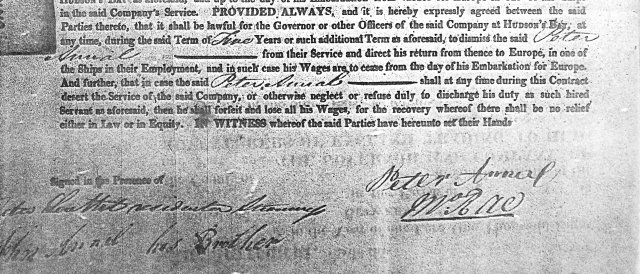 HUDSON'S BAY
in the said Company's Service. PROVIDED ALWAYS, and it is hereby expressly agreed between the said
Parties thereto, that it shall be lawful for the Governor or other Officers of the said Company at Hudson's Bay, at
any time, during the said Term of Five Years or such additional Term as aforesaid, to dismiss the said Peter
Annal from their Service and direct his return from thence to Europe, in one of
the Ships in their Employment, and in such case his Wages are to cease from the day of his Embarkation for Europe.
And further, that in case the said Peter Annal shall at any time during this Contract
desert the Service of the said Company, or otherwise neglect or refuse duly to discharge his duty as such hired
Servant as aforesaid, then he shall forfeit and lose all his Wages, for the recovery whereof there shall be no relief
either in Law or in Equity. IN WITNESS whereof the said Parties have hereunto set their Hands
Signed in the Presence of
Peter Annal
McRae
Annal his Brother